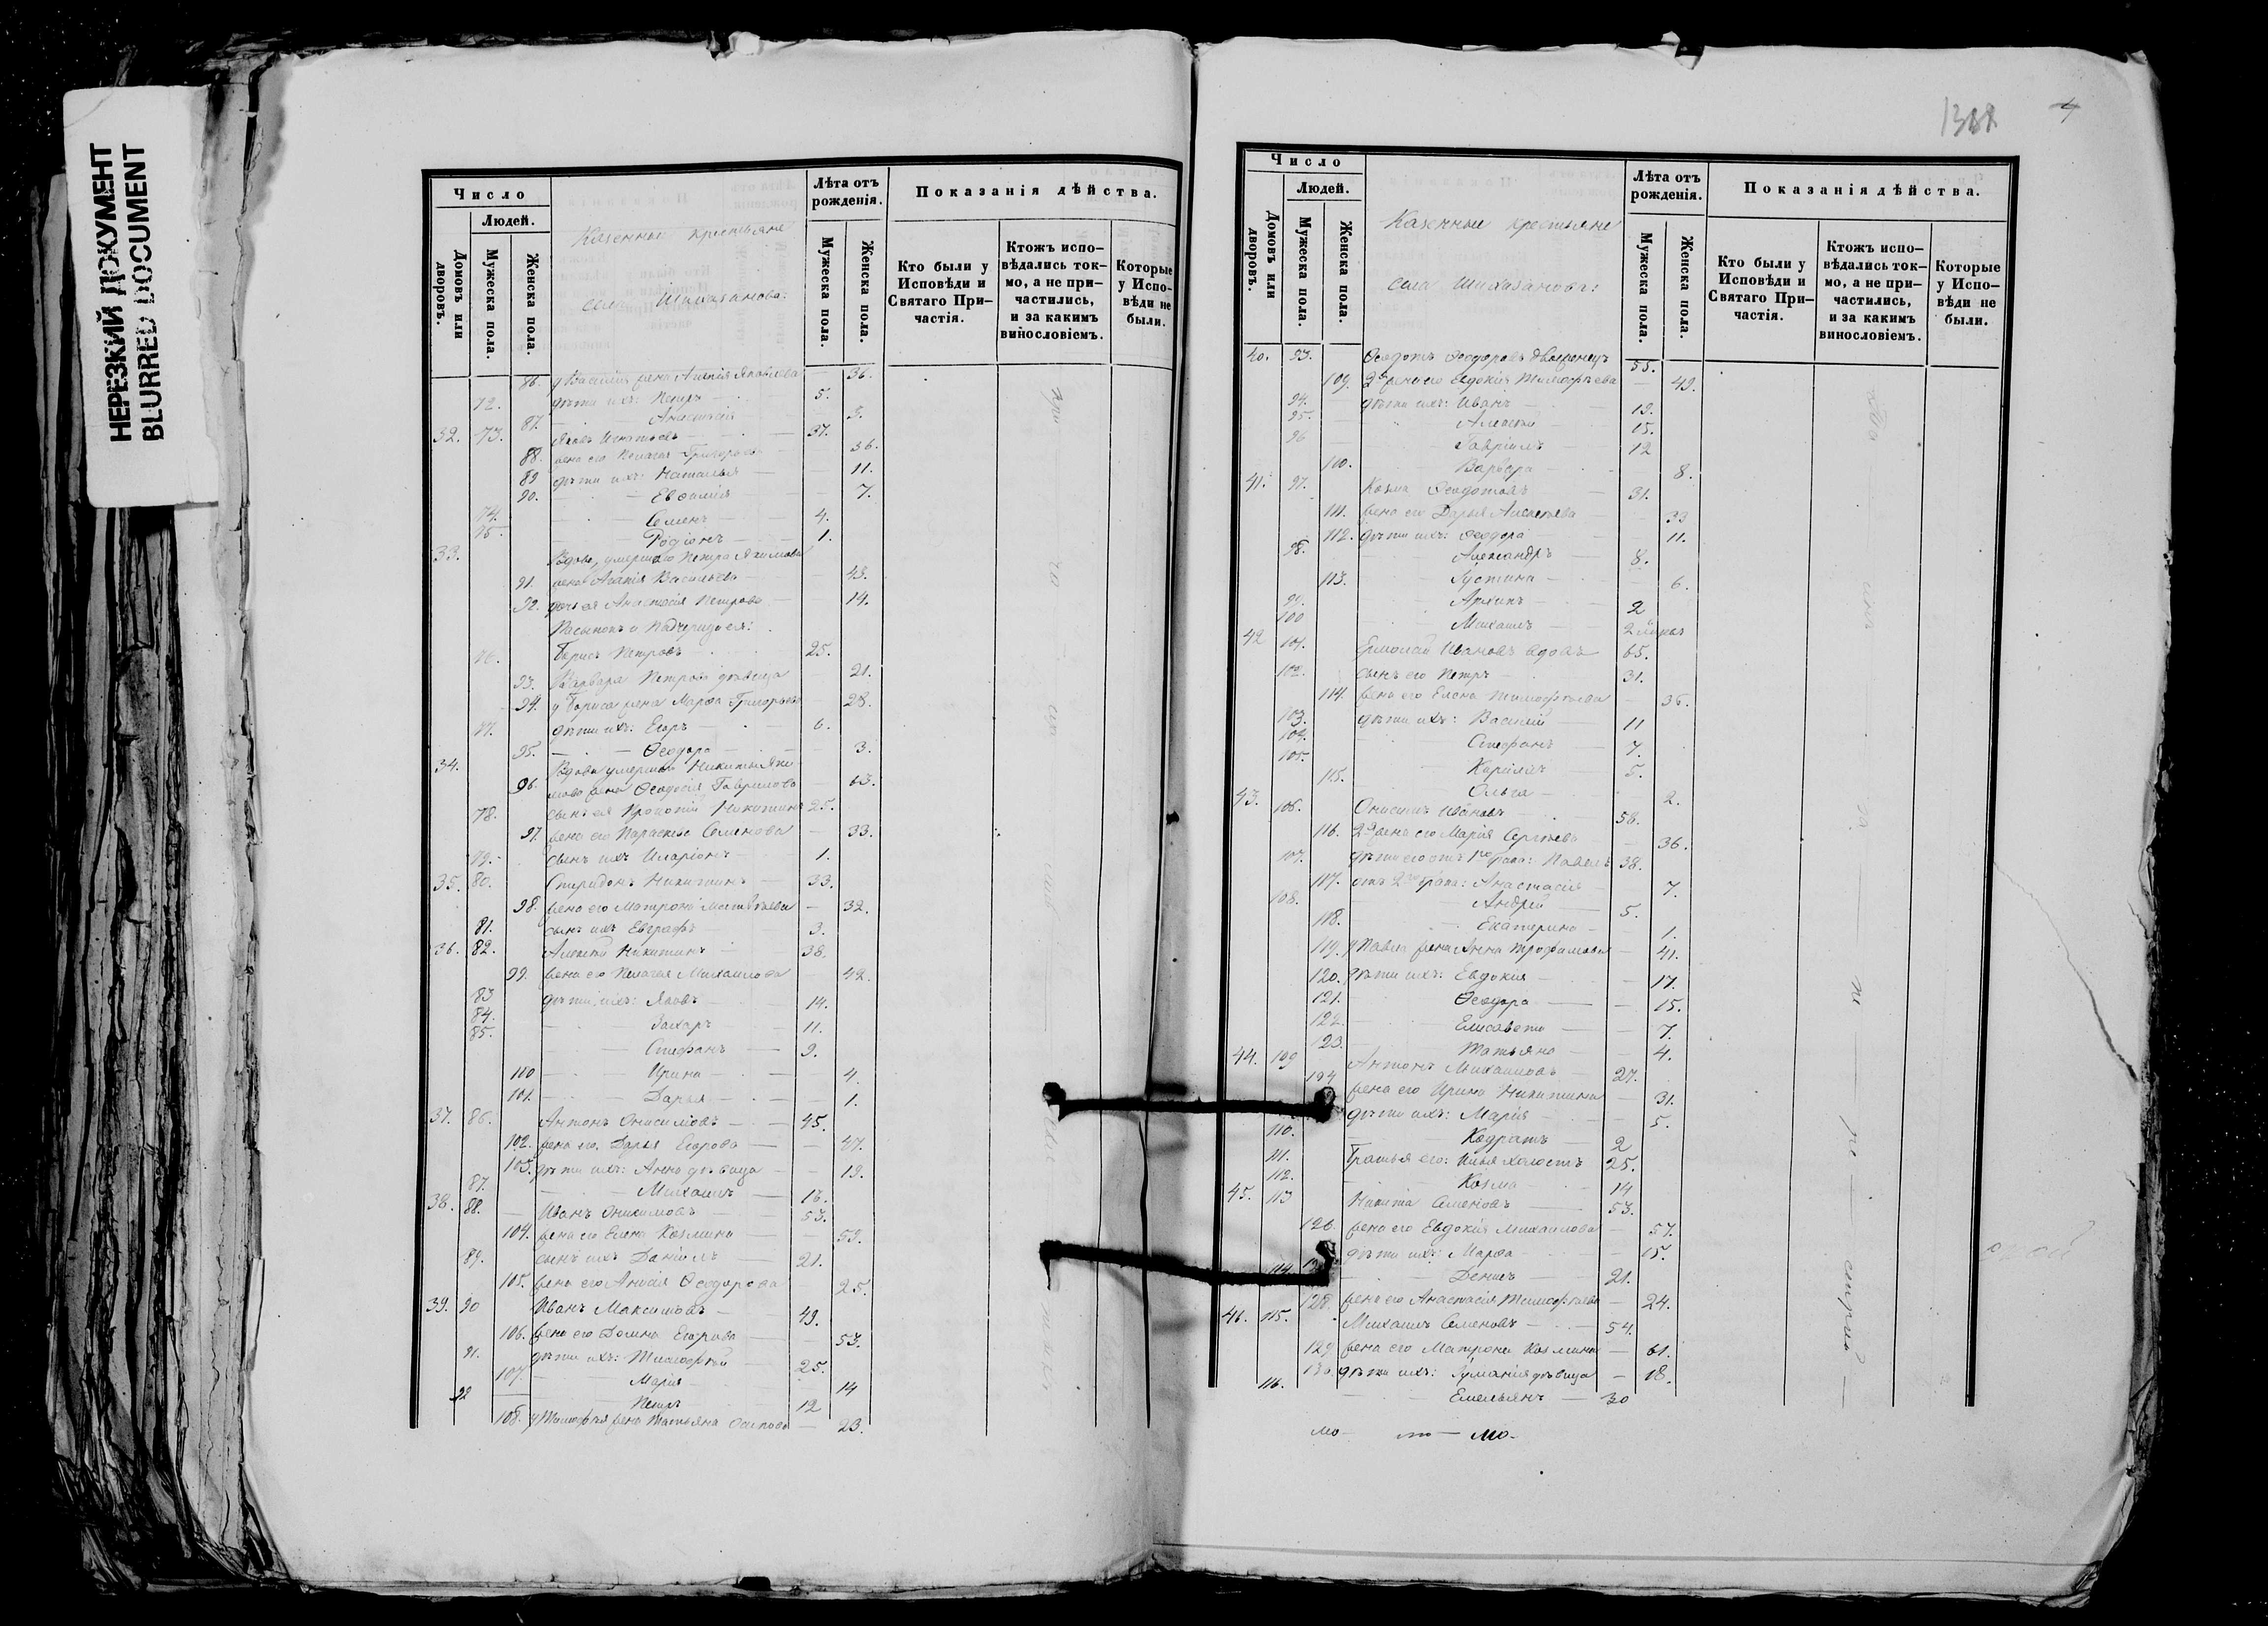 НЕРЕЗКИЙ ДОКУМЕНТ
BLURRED DOCUMENT
Число
Людей.
Домовъ или дворовъ.
Мужеска пола.
Женска пола.
Казенные крестьяне
села Шихазанова:
Лѣта отъ рожденія.
Мужеска пола.
Женска пола.
Показанія дѣйства.
Кто были у Исповѣди и Святаго Причастія.
Ктожъ исповѣдались токмо, а не причастились, и за какимъ винословіемъ.
Которые у Исповѣди не были.
86. у Василія жена Агапія Яковлева — 36.
72. дѣти ихъ: Петръ — 5.
87. Анастасія 3.
32. 73. Яковъ Игнатьевъ — 37.
88. жена его Пелагея Григорьева 36.
89 дѣти ихъ: Наталья — 11.
90. — Евфимія — 7.
74. — Семенъ — 4.
75. — Родіонъ — 1.
33. Вдова, умершаго Петра Якимова
91. жена Агапія Васильева — 43.
92. дочь ея Анастасія Петрова — 14.
Пасынокъ и Падчерица ея:
76. Борисъ Петровъ 25.
93. Варвара Петрова дѣвица — 21.
94. у Бориса жена Марѳа Григорьева — 28.
77. дѣти ихъ: Егоръ — 6.
95. — Ѳедора — 3.
34. Вдова умершаго Никиты Яки-
96. мова жена Ѳеодосія Гаврилова — 63.
78. сынъ ея Прокопій Никитинъ 25.
97. жена его Параскева Семенова — 33.
79. сынъ ихъ Иларіонъ — 1.
35. 80. Спиридонъ Никитинъ — 33.
98. жена его Матрона Матвѣева — 32.
81. сынъ ихъ Евграфъ — 3.
36. 82. Алексѣй Никитинъ — 38.
99. жена его Пелагея Михаилова — 42.
83 дѣти ихъ: Яковъ — 14.
84. Захаръ — 11.
85. — Стефанъ — 9.
110 — Ирина — 4.
101. — Дарья — 1.
37. 86. Антонъ Онисимовъ — 45.
102. жена его Дарья Егорова — 47.
103. дѣти ихъ: Анна дѣвица — 19.
87. — Михаилъ — 16.
38. 88. — Иванъ Онисимовъ — 53.
104. жена его Елена Козмина — 59.
89. сынъ ихъ Даніилъ — 21.
105. жена его Анисія Ѳеодорова 25.
39. 90 Иванъ Максимовъ — 49.
106. жена его Домна Егорова — 53.
91. дѣти ихъ: Тимоѳей — 25.
107. — Марія — 14
92 — Петръ — 12
108. у Тимоѳея жена Татьяна Осипова — 23.
4
Число
Людей.
Домовъ или дворовъ.
Мужеска пола.
Женска пола.
Казенные крестьяне
села Шихазанова:
Лѣта отъ рожденія.
Мужеска пола.
Женска пола.
Показанія дѣйства.
Кто были у Исповѣди и Святаго Причастія.
Ктожъ исповѣдались токмо, а не причастились, и за какимъ винословіемъ.
Которые у Исповѣди не были.
40. 93. Ѳеодотъ Ѳеодоровъ 55.
109. 2я жена его Евдокія Тимоѳеева — 49.
94. дѣти ихъ: Иванъ — 19.
95. Алексѣй 15.
96 Гавріилъ 12
110. Варвара — 8.
41. 97. Козма Ѳеодотовъ — 31.
111. жена его Дарья Алексѣева — 33
112. дѣти ихъ: Ѳеодора — 11.
98. Александръ — 8.
113. Густина — 6.
99. Архипъ — 2
100 Михаилъ — 2
42 101. Ермолай Ивановъ вдовъ 65.
102. сынъ его Петръ — 31.
114. жена его Елена Тимоѳеева — 36.
103. дѣти ихъ: Василій — 11
104. Стефанъ — 7.
105. Кириллъ — 5.
115. Ольга — 2.
43. 106. Онисимъ Ивановъ — 58.
116. 2я жена его Марія Сергѣева 36.
107. дѣти его отъ 1го брака: Павелъ 38.
117. отъ 2го брака: Анастасія — 7.
108. Андрей — 5.
118. Екатерина — 1.
119. у Павла жена Анна Трофимова — 41.
120. дѣти ихъ: Евдокия — 17.
121. Ѳеодора — 15.
122. Елисавета — 7.
123. Татьяна — 4.
44. 109 Антонъ Михаиловъ — 27.
124 жена его Ирина Никитина — 31.
дѣти ихъ: Марія — 5.
110. Кодратъ — 2
111. Братья его: Илья холостъ 25.
112. Козма — 14
45. 113 Никита Семеновъ — 53.
126. жена его Евдокія Михаилова — 57.
дѣти ихъ: Марѳа — 15.
114. Денисъ — 21.
128. жена его Анастасія Тимоѳеева — 24.
46. 115. Михаилъ Семеновъ — 54.
129 жена его Матрона Козмина — 61.
130. дѣти ихъ: дѣвица — 18.
116. Емельянъ — 30